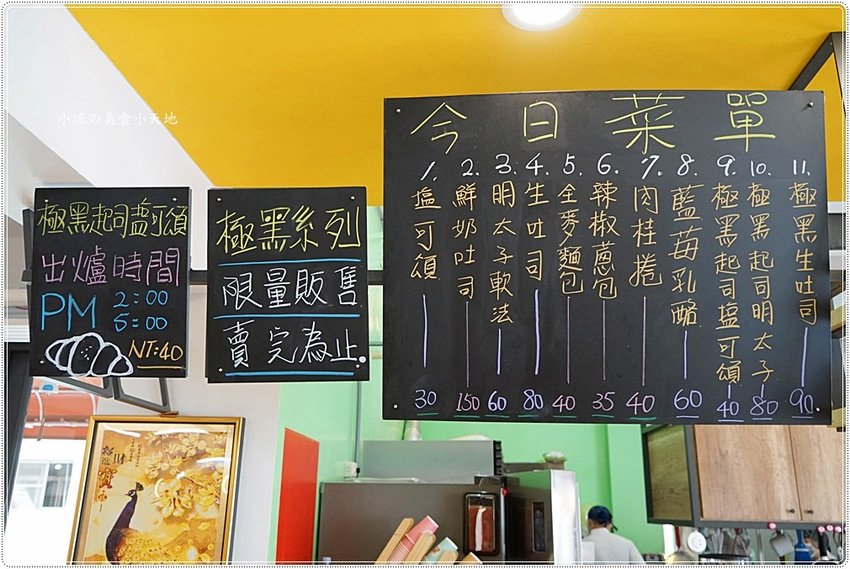 小凉の美食小天地
極黑起司塩可頌
出爐時間
PM 2:00
5:00
NT:40
極黑系列
限量販售
賣完為止.
今日菜單
1. 塩可頌 30
2. 鮮奶吐司 150
3. 明太子軟法 60
4. 生吐司 80
5. 全麥麵包 40
6. 辣椒蔥包 35
7. 肉桂捲 40
8. 藍莓乳酪 60
9. 極黑起司塩可頌 40
10. 極黑起司明太子 80
11. 極黑生吐司 90